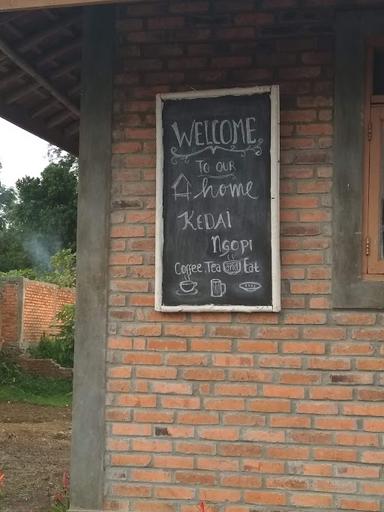 WELCOME
TO OUR
home
KEDAI
NGOPI
Coffee Tea and Eat